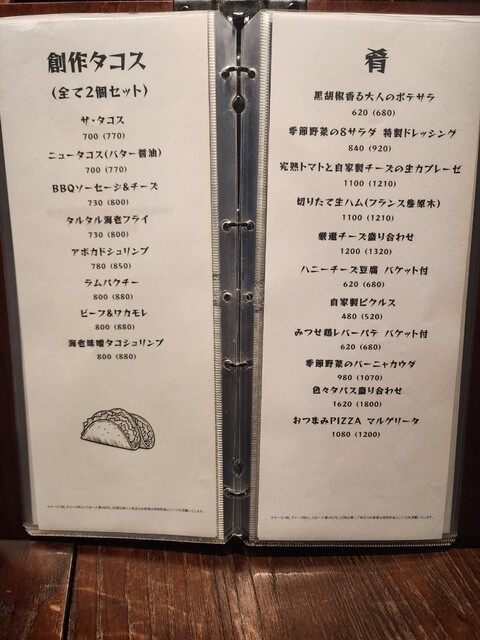 創作タコス
(全て2個セット)
ザ・タコス
700 (770)
ニュータコス(バター醤油)
700 (770)
BBQソーセージ&チーズ
730 (800)
タルタル海老フライ
730 (800)
アボカドシュリンプ
780 (850)
ラムパクチー
800 (880)
ビーフ&ワカモレ
800 (880)
海老味噌タコシュリンプ
800 (880)
肴
黒胡椒香る大人のポテサラ
620 (680)
季節野菜の8サラダ 特製ドレッシング
840 (920)
完熟トマトと自家製チーズの生カプレーゼ
1100 (1210)
切りたて生ハム(フランス産原木)
1100 (1210)
厳選チーズ盛り合わせ
1200 (1320)
ハニーチーズ豆腐 バケット付
620 (680)
自家製ピクルス
480 (520)
みつせ鶏レバーパテ バケット付
620 (680)
季節野菜のバーニャカウダ
980 (1070)
色々タパス盛り合わせ
1620 (1800)
おつまみPIZZA マルゲリータ
1080 (1200)